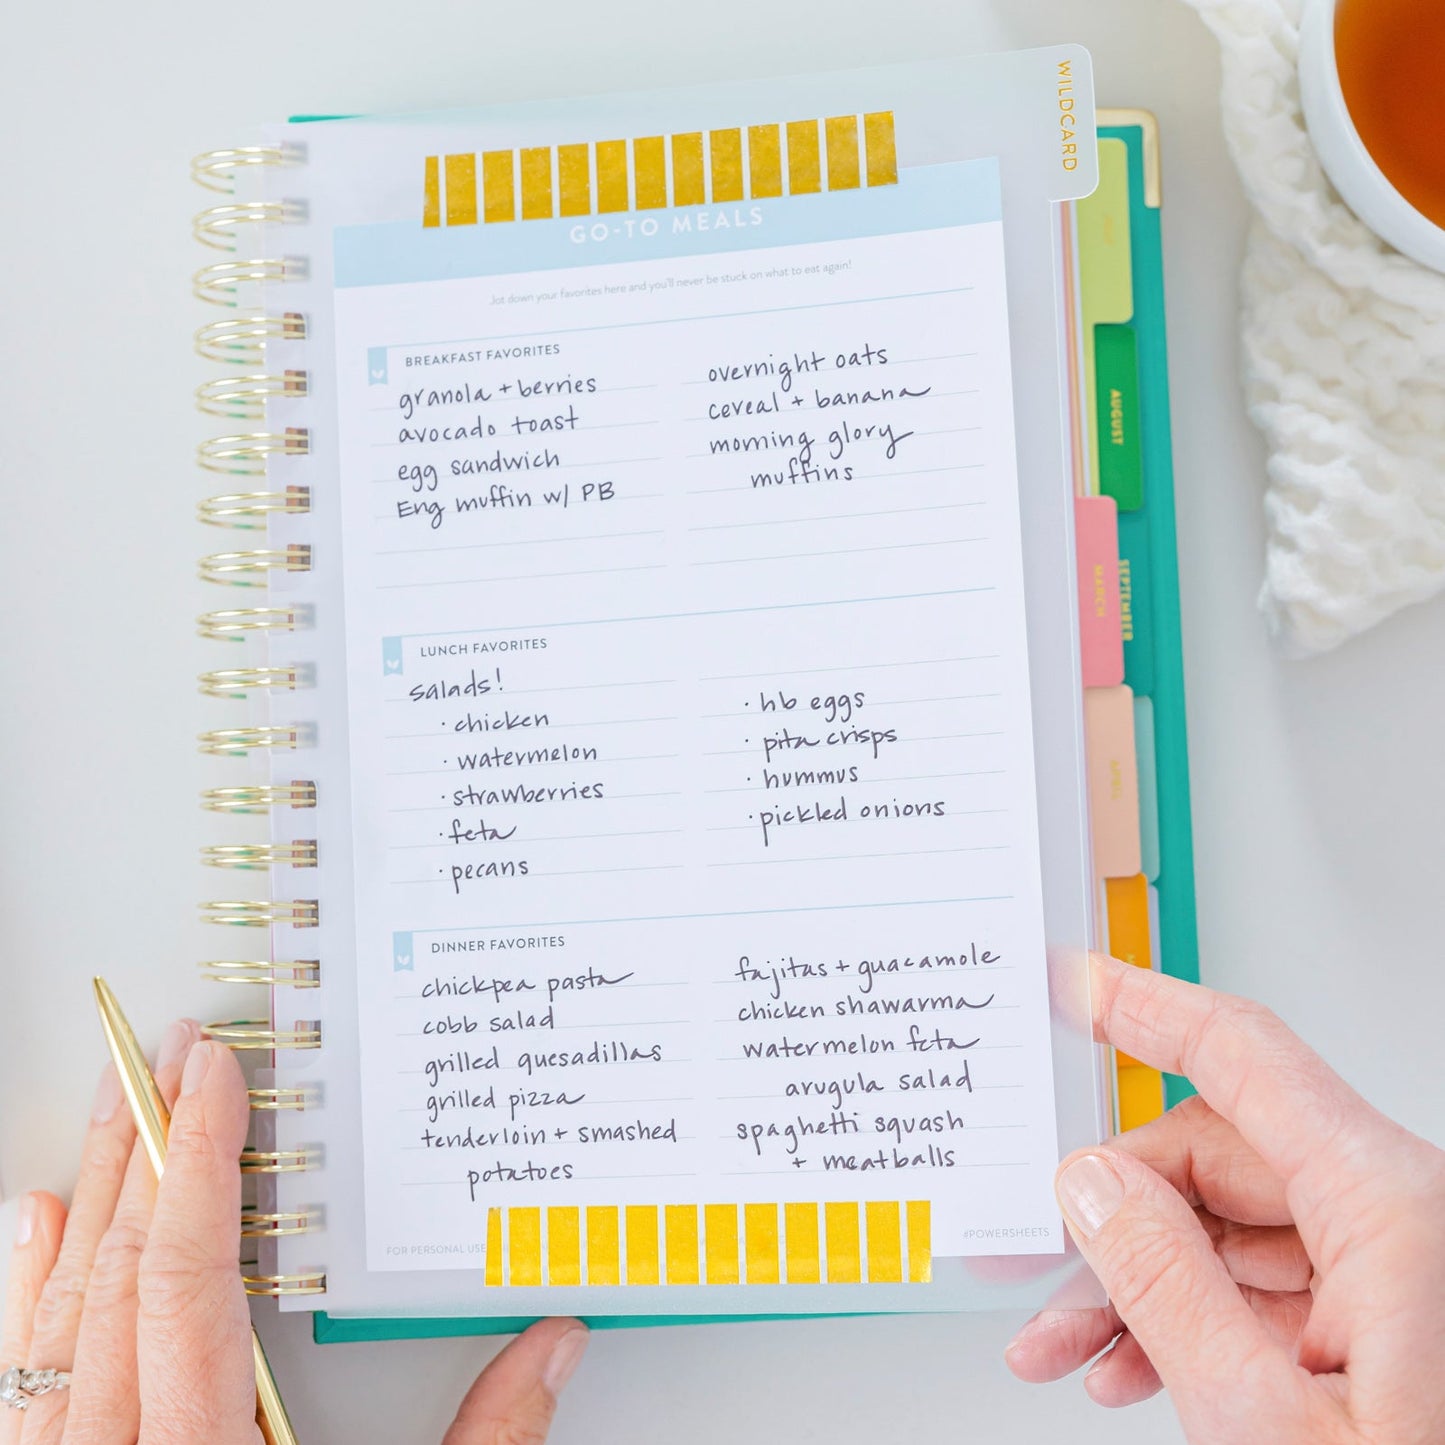 WILDCARD
GO-TO MEALS
Jot down your favorites here and you'll never be stuck on what to eat again!
BREAKFAST FAVORITES
granola + berries
avocado toast
egg sandwich
Eng muffin w/ PB
overnight oats
cereal + banana
morning glory
muffins
LUNCH FAVORITES
salads!
· chicken
· watermelon
· strawberries
· feta
· pecans
· hb eggs
· pita crisps
· hummus
· pickled onions
DINNER FAVORITES
chickpea pasta
cobb salad
grilled quesadillas
grilled pizza
tenderloin + smashed
potatoes
fajitas + guacamole
chicken shawarma
watermelon feta
arugula salad
spaghetti squash
+ meatballs
FOR PERSONAL USE
#POWERSHEETS
AUGUST
MARCH
SEPTEMBER
APRIL